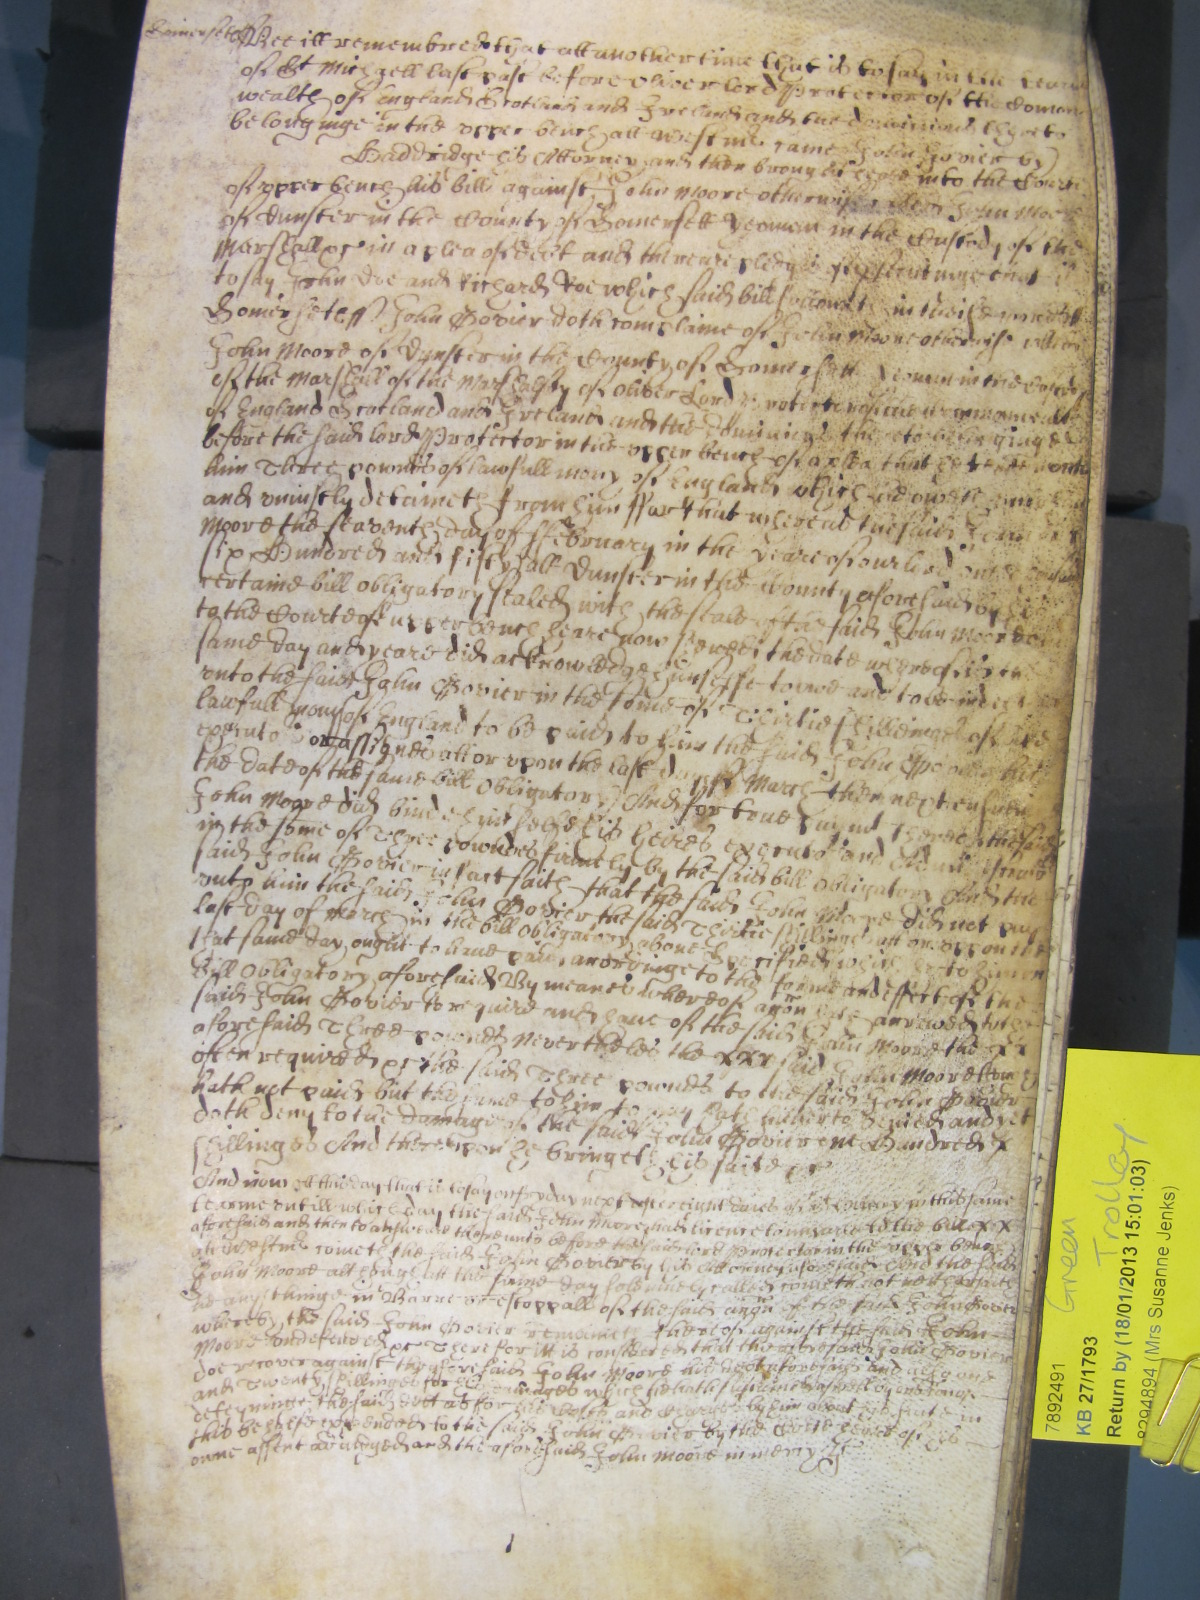 Somersett ss Bee itt remembred that att another time that is to say in the Tearme
of St Michaell last past before Oliver Lord Protector of the Comon
wealth of England Scotland and Ireland and the dominions thereto
belonginge in the upper bench att Westmr came John Govier by
Baddridge his Attorney and then brought here into the Court
of upper bench his bill against John Moore otherwise called John Moore
of Dunster in the County of Somersett Yeoman in the Custody of the
Marshall &c in a plea of debt and there are pledges of prosecutinge that is
to say John Doe and Richard Roe which said bill followeth in theise words
Somersett ss John Govier doth complaine of John Moore otherwise called
John Moore of Dunster in the County of Somersett Yeoman in the Custody
of the Marshall of the Marshalsey of Oliver Lord Protector of the Comonwealth
of England Scotland and Ireland and the dominions thereto belonginge
before the said lord Protector in the upper bench of a plea that he render unto
him Three pownds of lawfull mony of England which he oweth unto him
and uniustly detaineth from him ffor that whereas the said John
Moore the seaventh day of ffebruary in the yeare of our lord one thousand
six Hundred and fifty att Dunster in the County aforesaid by his
certaine bill obligatory sealed with the seale of the said John Moore and
to the Court of upper bench heare now shewed the date whereof is the
same day and yeare did acknowledge himselfe to owe and to be indebted
unto the said John Govier in the some of Thirtie shillinges of like
lawfull mony of England to be paid to him the said John Govier his
executors or assignes att or upon the last day of March then next ensuinge
the date of the same bill Obligatory And for true paymt thereof the said
John Moore did binde himselfe his heires executors and Administrators
in the some of Three pownds firmely by the said bill obligatory And the
said John Govier in fact saith that the said John Moore did not pay
unto him the said John Govier the said Thirtie shillinges att or uppon the
last day of March in the bill obligatory above specified which he to him on
that same day ought to have paid accordinge to the forme and effect of the
bill Obligatory aforesaid By meanes whereof accon hath accrewed to the
said John Govier to require and have of the said John Moore the xx
aforesaid Three pownds Neverthelesse the xxx said John Moore
often required &c the said Three pownds to the said John Govier
hath not paid but the same to him to pay hath hitherto denied and yet
doth deny to the damage of the said John Govier one Hundred x
shillinges And thereupon he bringeth his suite &c
And now att this day that is to say on fryday next after eight dayes of St Hillary in this same
tearme untill which day the said John Moore had licence to imparle to the bill xx
aforesaid and then to answeare thereunto before the said lord Protector in the upper bench
att Westmr cometh the said John Govier by his Attorney aforesaid And the said
John Moore although att the same day solemnely called cometh not nor saith
he any thinge in Barre or estoppall of the said accon of the said John Govier
whereby the said John Govier remaineth thereof against the said John
Moore undefended &c Therefore itt is considered that the aforesaid John Govier
doe recover against the aforesaid John Moore his debt aforesaid and alsoe one
and Twenty shillinges for his damages which he hath susteined aswell by occasion
deteyninge the said debt as for his Costs and Charges by him about his suite in
this behalfe expended to the said John Govier by the Court heare of his
owne assent adiudged and the aforesaid John Moore in mercy &c
7892491
Green
Trolley
KB 27/1793
Return by (18/01/2013 15:01:03)
(Mrs Susanne Jenks)